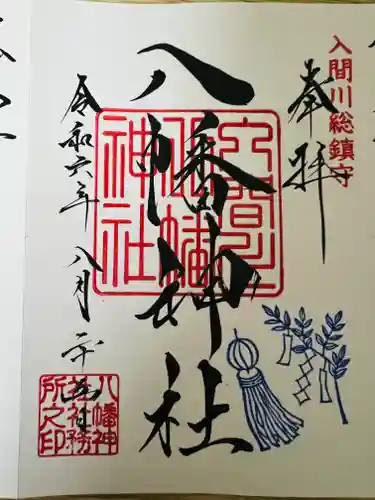 入間川総鎮守
奉拝
八幡神社
入間川
八幡
神社
令和六年八月二十四日
八幡神
社社務
所之印